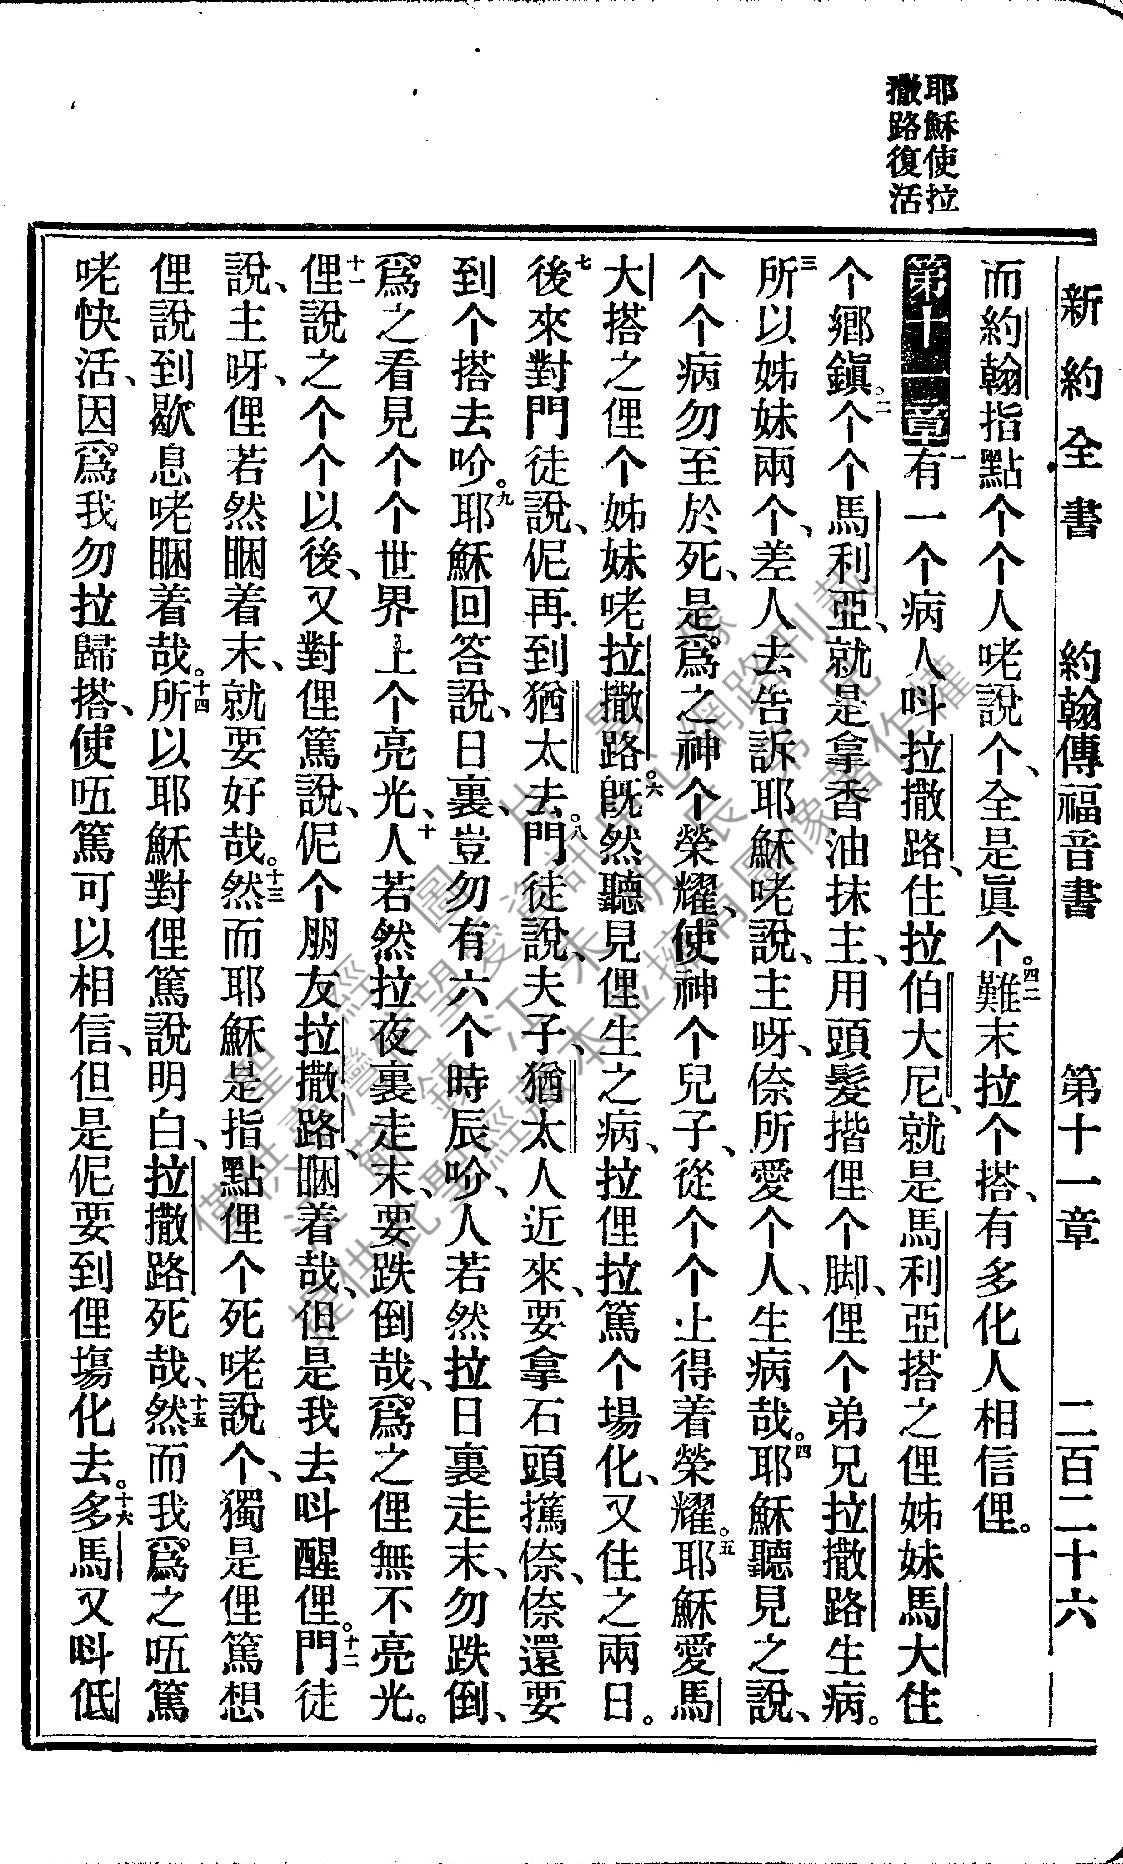 耶穌使拉
撒路復活
新約全書 約翰傳福音書 第十一章 二百二十六
而約翰指點个个人咾說个、全是眞个。四二難末拉个搭、有多化人相信俚。
第十一章 一有一个病人呌拉撒路、住拉伯大尼、就是馬利亞搭之俚姊妹馬大住
个鄉鎭。二个个馬利亞、就是拿香油抹主、用頭髮揩俚个脚、俚个弟兄拉撒路生病。
三所以姊妹兩个、差人去告訴耶穌咾說、主呀、倷所愛个人、生病哉。四耶穌聽見之說、
个个病勿至於死、是爲之神个榮耀、使神个兒子、從个个上得着榮耀。五耶穌愛馬
大搭之俚个姊妹咾拉撒路。六旣然聽見俚生之病、拉俚拉篤个塲化、又住之兩日。
七後來對門徒說、伲再到猶太去。八門徒說、夫子、猶太人近來、要拿石頭擲倷、倷還要
到个搭去吤。九耶穌回答說、日裏豈勿有六个時辰吤、人若然拉日裏走末、勿跌倒、
爲之看見个个世界上个亮光、十人若然拉夜裏走末、要跌倒哉、爲之俚無不亮光。
十一俚說之个个以後、又對俚篤說、伲个朋友拉撒路、睏着哉、但是我去呌醒俚。十二門徒
說、主呀、俚若然睏着末、就要好哉。十三然而耶穌是指點俚个死咾說个、獨是俚篤想
俚說到歇息咾睏着哉。十四所以耶穌對俚篤說明白、拉撒路死哉、十五然而我爲之㑚篤
咾快活、因爲我勿拉歸搭、使㑚篤可以相信、但是伲要到俚塲化去。十六多馬又呌低